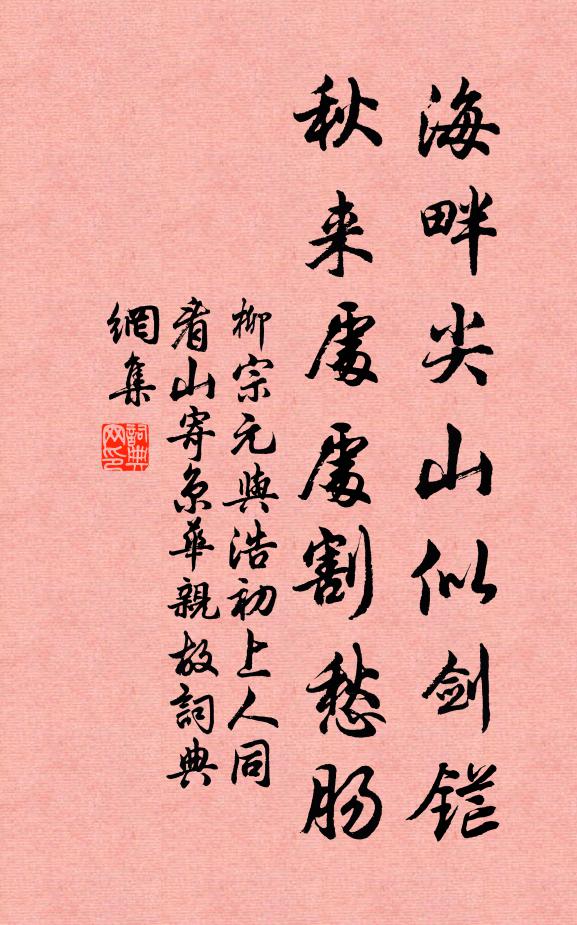 海畔尖山似劍鋩
秋来處處割愁肠
柳宗元與浩初上人同
看山寄京華親故詞典
網集
詞典網印